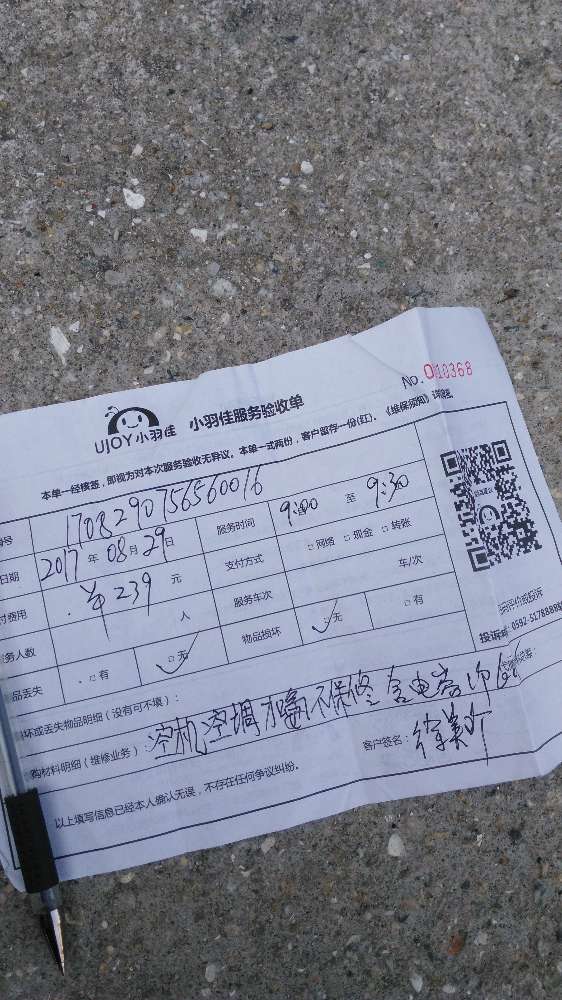 No.0018368
UJOY小羽佳 小羽佳服务验收单
本单一经核签,即视为对本次服务验收无异议。本单一式两份,客户暂存一份(红)。《维保须知》详见
号 1708290756560016
日期 2017年08月29日 服务时间 9:00 至 9:30
付费用 ¥239 元 支付方式 □网络 □现金 □转账
务人数 人 服务车次 车/次
品丢失 □有 □无 物品损坏 □无 □有
投诉 0592-5178888
坏或丢失物品明细(没有可不填):
购材料明细(维修业务): 空调 不保修 含电
客户签名:
以上填写信息已经本人确认无误,不存在任何争议纠纷。